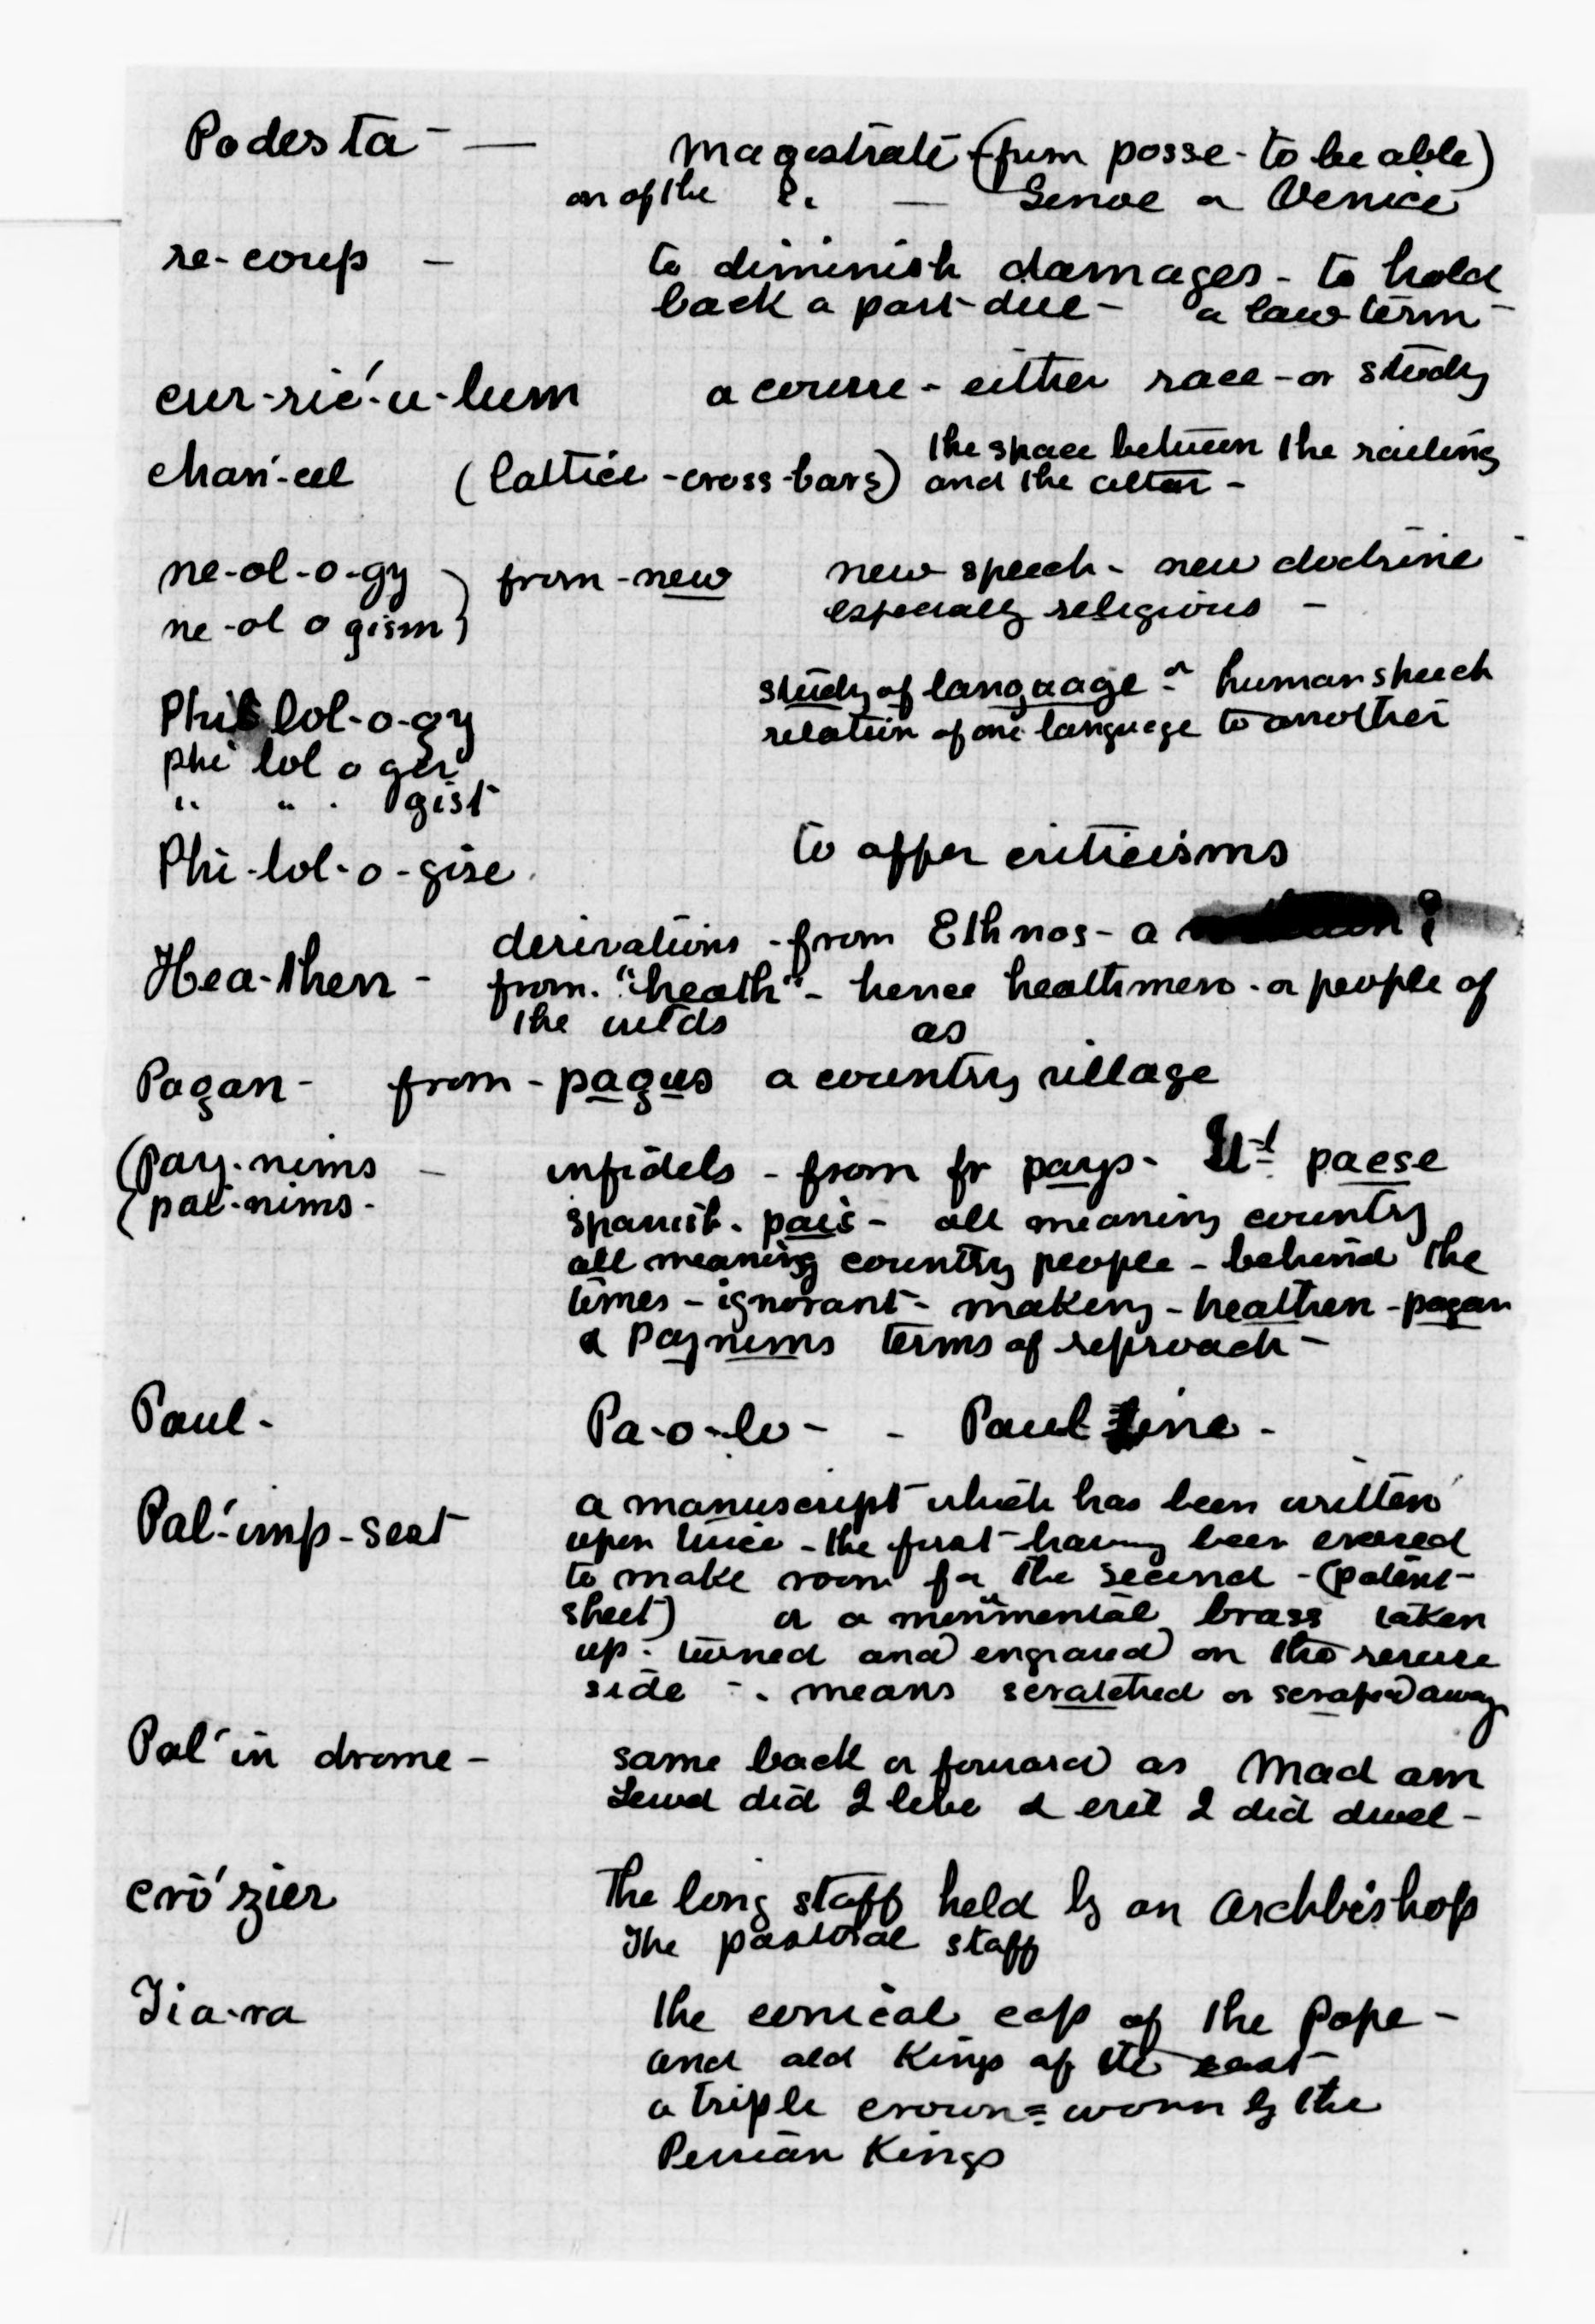 Podesta — magistrate (from posse - to be able)
or of the — Genoe or Venice
re-coup - to diminish damages - to hold
back a part due - a law term -
cur-ric´-u-lum a course - either race - or study
chan´-cel (lattice - cross-bars) the space between the railing
and the altar -
ne-ol-o-gy } from - new new speech - new doctrine
ne-ol o gism } especially religious -
Phi lol-o-gy study of language - or human speech
relation of one language to another
phi lol o ger
" " . ogist
Phi-lol-o-gise. to offer criticisms
Hea-then - derivations - from Ethnos - a ?
from. "heath" - hence heathmen - or people of
the wilds as
Pagan - from - pagus a country village
(pay-nims - infidels - from fr pays - It paese
(pai-nims - spanish - pais - all meaning country
all meaning country people - behind the
times - ignorant - making - heathen - pagan
& Paynims terms of reproach -
Paul - Pa-o-lo - - Paul ine -
Pal´-imp-sest a manuscript which has been written
upon twice - the first having been erased
to make room for the second - (patent-
sheet) or a monumental brass taken
up - turned and engraved on the reverse
side - . means scratched or scraped away
Pal´in drome - same back or forward as Mad am
Lewd did I live & evil I did dwel -
cro´zier The long staff held by an Archbishop
The pastoral staff
Tia-ra the conical cap of the Pope -
and old Kings of the east
a triple crown = worn by the
Persian Kings